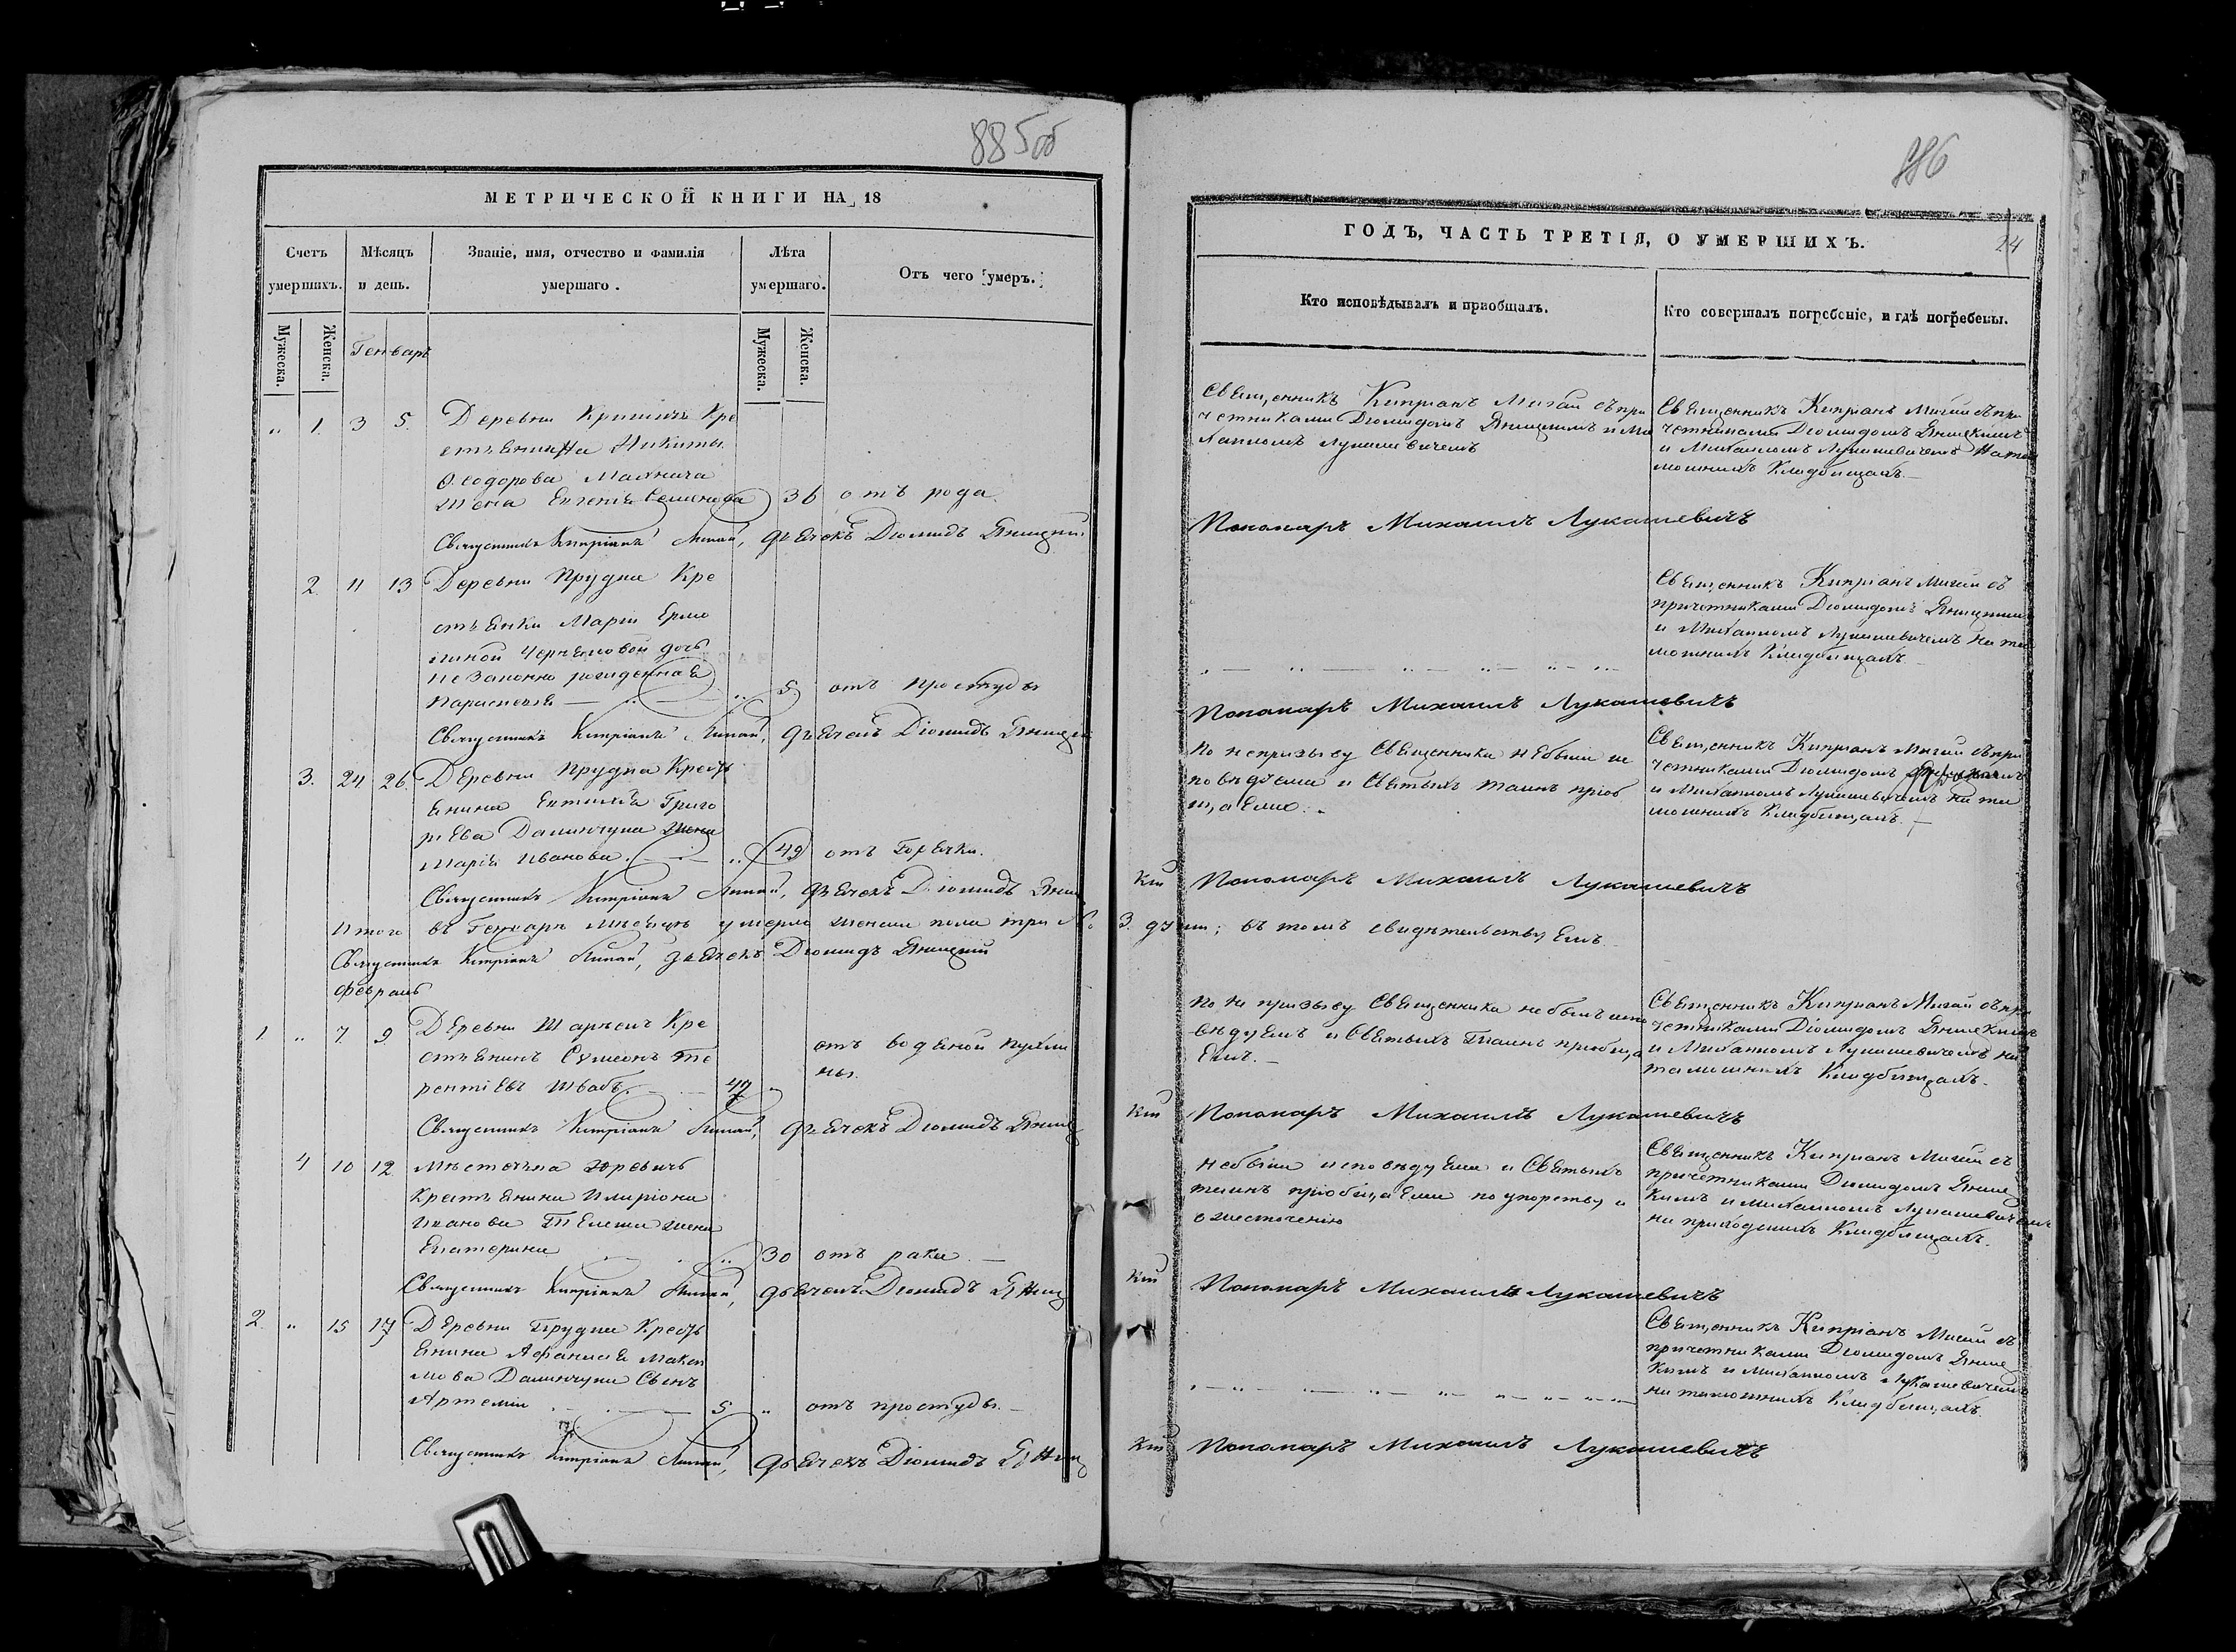 885об
МЕТРИЧЕСКОЙ КНИГИ НА 18
Счетъ умершихъ.
Мѣсяцъ и день.
Званіе, имя, отчество и фамилія умершаго.
Лѣта умершаго.
Отъ чего умеръ.
Мужеска.
Женска.
Генварь
Мужеска.
Женска.
„ 1. 3 5. Деревни Кре
стьянина Никиты
Ѳеодорова
жена Евгенія Семенова 36 отъ рода.
Священникъ Кипріанъ Мигай, дьячекъ Діомидъ Яницкій
2 11 13 Деревни Прудка Кре
стьянки Маріи Ермо
линой дочь
незаконно рожденная
Параскевія — „ — „ 5. отъ простуды
Священникъ Кипріанъ Мигай, дьячекъ Діомидъ Яницкій
3. 24 26. Деревни Прудка Кресть
янина Евтихія Григо
рьева Даминчука жена
Марія Иванова. „ 49 отъ Горячки.
Священникъ Кипріанъ Мигай, дьячекъ Діомидъ Яниц
Итого въ Генварѣ мѣсяцѣ умерло женска пола три №
Священникъ Кипріанъ Мигай, дьячекъ Діомидъ Яницкій
Февраль
1. „ 7 9 Деревни Кре
стьянинъ Сумеонъ Те
рентіевъ Швабъ 49 „ отъ водяной пухли
ны.
Священникъ Кипріанъ Мигай, дьячекъ Діомидъ Яниц
4 10 12 Мѣстечка Юревичъ
крестьянина Иларіона
Иванова Телеша жена
Екатерина „ 30 отъ рака —
Священникъ Кипріанъ Мигай, дьячекъ Діомидъ Яниц
2. „ 15 17 Деревни Прудка Кресть
янина Афанасія Макси
мова Даминчука Сынъ
Артемій — 5 „ отъ простуды. —
Священникъ Кипріанъ Мигай, дьячекъ Діомидъ Яниц
886
24
ГОДЪ, ЧАСТЬ ТРЕТІЯ, О УМЕРШИХЪ.
Кто исповѣдывалъ и приобщалъ.
Кто совершалъ погребеніе, и гдѣ погребены.
Священникъ Кипріанъ Мигай съ при
четниками Діомидомъ Яницкимъ и Ми
хаиломъ Лукашевичемъ
Священникъ Кипріанъ Мигай съ при
четниками Діомидомъ Яницкимъ
и Михаиломъ Лукашевичемъ На та
мошнихъ Кладбищахъ. —
Пономарь Михаилъ Лукашевичъ
Священникъ Кипріанъ Мигай съ
причетниками Діомидомъ Яницкимъ
и Михаиломъ Лукашевичемъ на та
мошнихъ Кладбищахъ —
„ — „ — „ — „ — „ — „
Пономарь Михаилъ Лукашевичъ
По непризыву Священника небыла ис
повѣдуема и Святыхъ таинъ пріоб
щаема. —
Священникъ Кипріанъ Мигай съ при
четниками Діомидомъ
и Михаиломъ Лукашевичемъ на та
мошнихъ Кладбищахъ. —
кій Пономарь Михаилъ Лукашевичъ
3. души; въ томъ свидѣтельствуемъ
По непризыву Священника небылъ испо
вѣдуемъ и Святыхъ Таинъ пріобща
емъ. —
Священникъ Кипріанъ Мигай съ при
четниками Діомидомъ Яницкимъ
и Михаиломъ Лукашевичемъ на
тамошнихъ Кладбищахъ.
кій Пономарь Михаилъ Лукашевичъ
небыла исповѣдуема и Святыхъ
таинъ пріобщаема по упорству и
ожесточенію
Священникъ Кипріанъ Мигай съ
причетниками Діомидомъ Яниц
кимъ и Михаиломъ Лукашевичемъ
на приходскихъ Кладбищахъ.
кій Пономарь Михаилъ Лукашевичъ
Священникъ Кипріанъ Мигай съ
причетниками Діомидомъ Яниц
кимъ и Михаиломъ Лукашевичемъ
на тамошнихъ Кладбищахъ.
„ — „ — „ — „ — „ — „
кій Пономарь Михаилъ Лукашевичъ